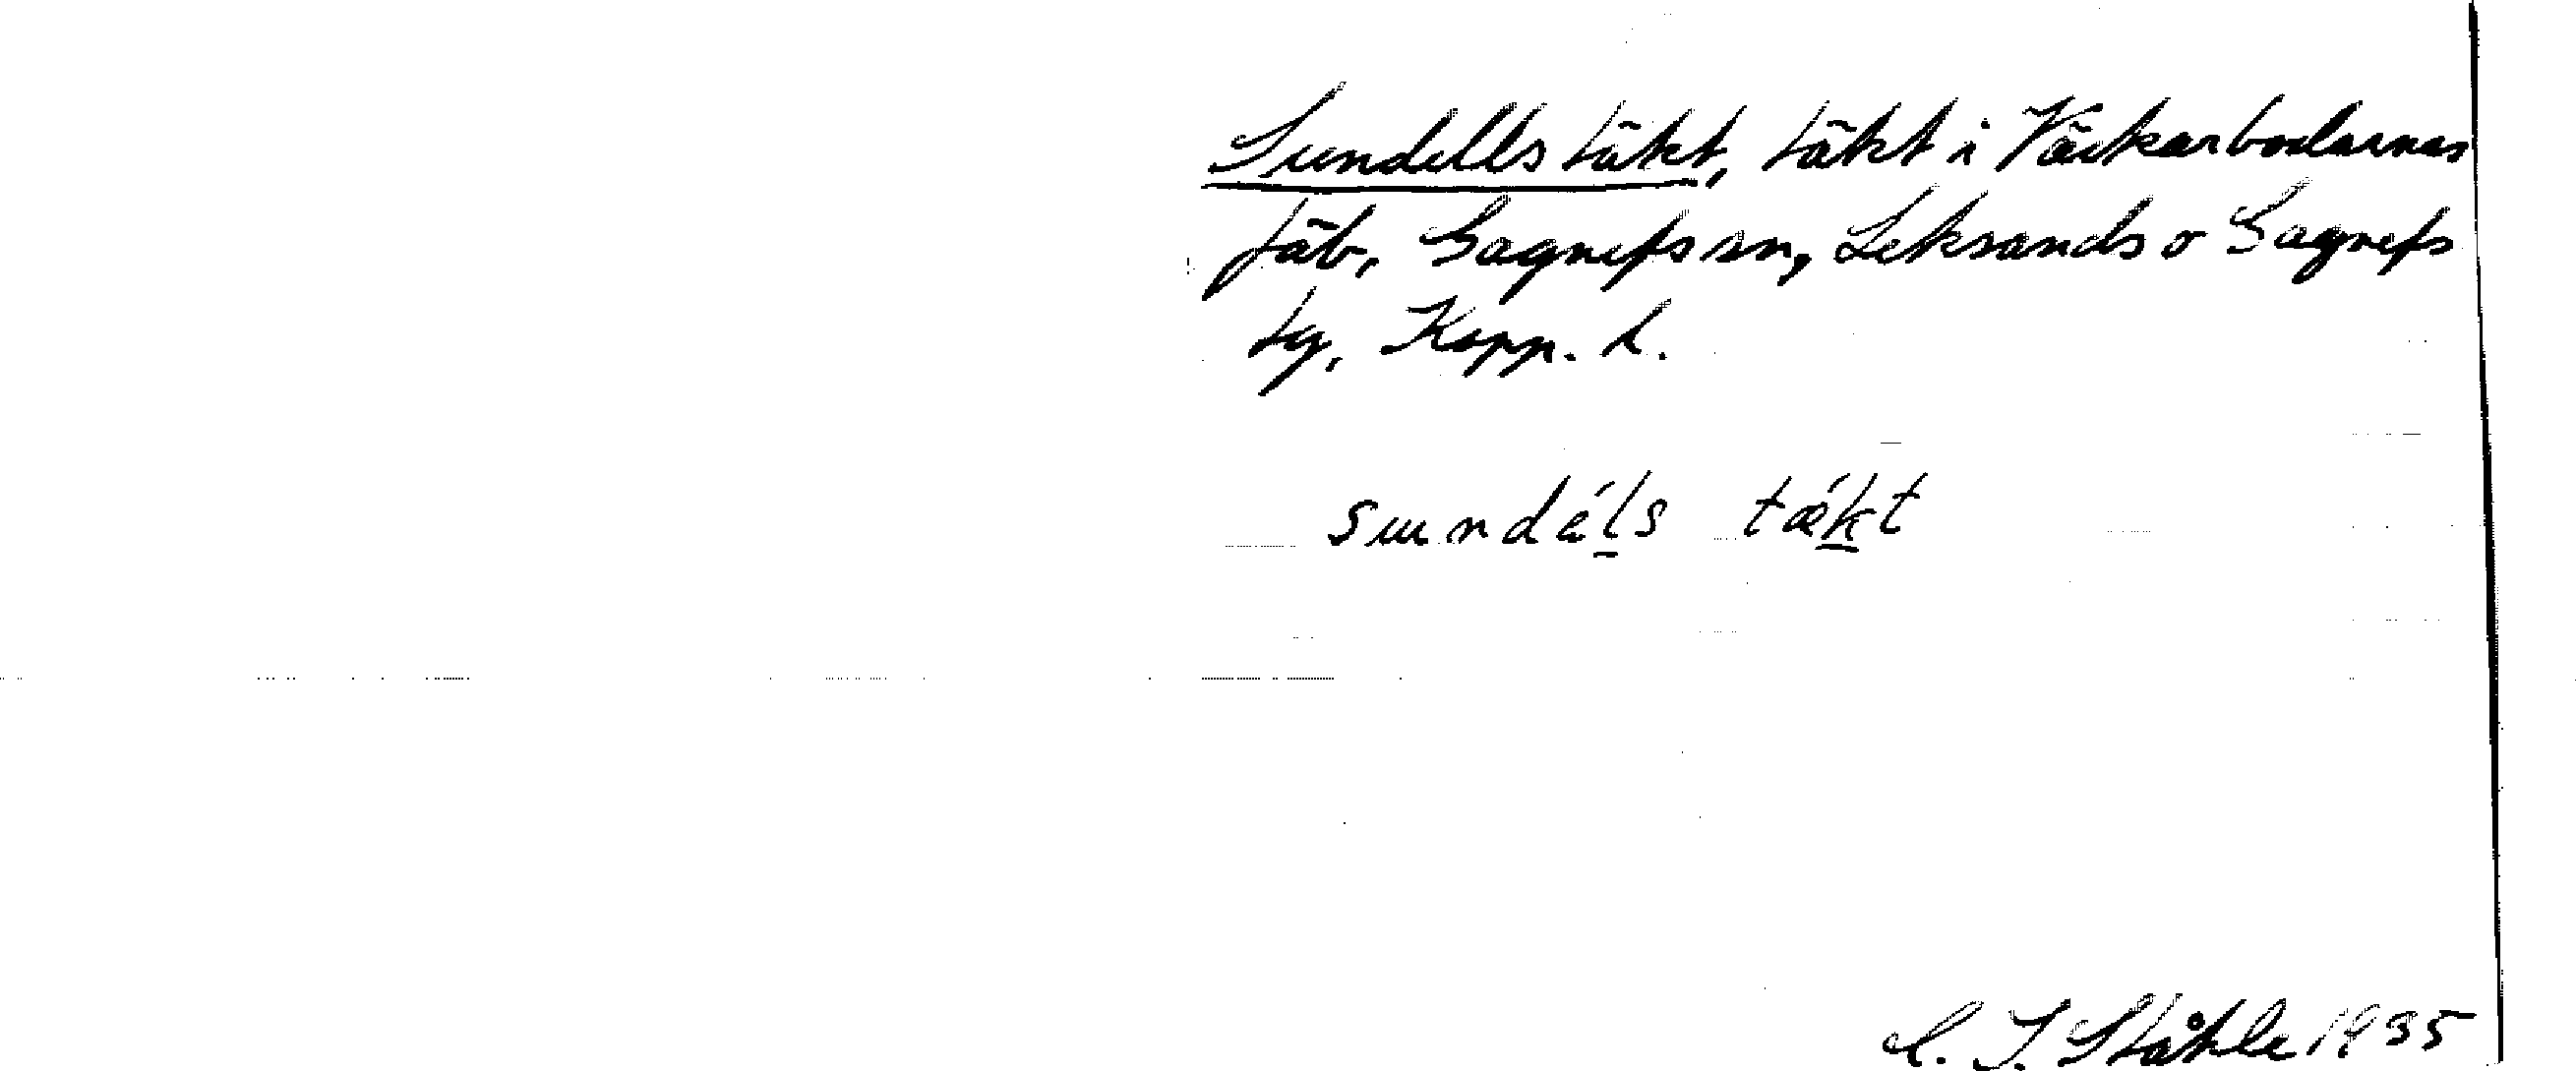 Sundells täkt, täkt i Väckarbodarnas
fäb, Gagnefs sn, Leksands o Gagnefs
tg, Kopp. l.
sɯndéls tǽkt
C. I. Ståhle 1935